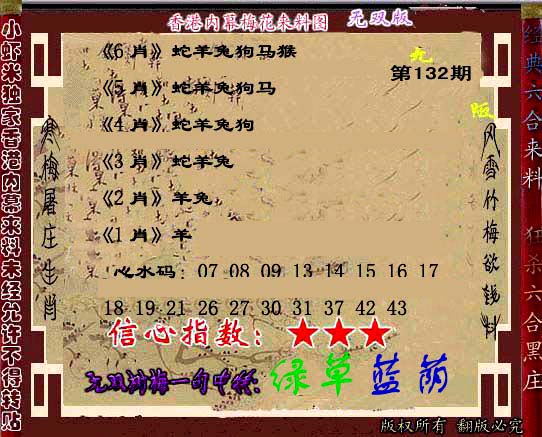 香港内幕梅花来料图 无双版
小虾米独家香港内幕来料未经允许不得转贴
《6 肖》蛇羊兔狗马猴
无
第132期
《5 肖》蛇羊兔狗马
版
《4 肖》蛇羊兔狗
《3 肖》蛇羊兔
《2 肖》羊兔
《1 肖》羊
寒梅屠庄生肖
风雪竹梅欲钱料
经典六合来料
狂杀六合黑庄
心水码：07 08 09 13 14 15 16 17
18 19 21 26 27 30 31 37 42 43
信心指数：★★★
无双剑梅一句中特：绿草蓝荫
版权所有 翻版必究